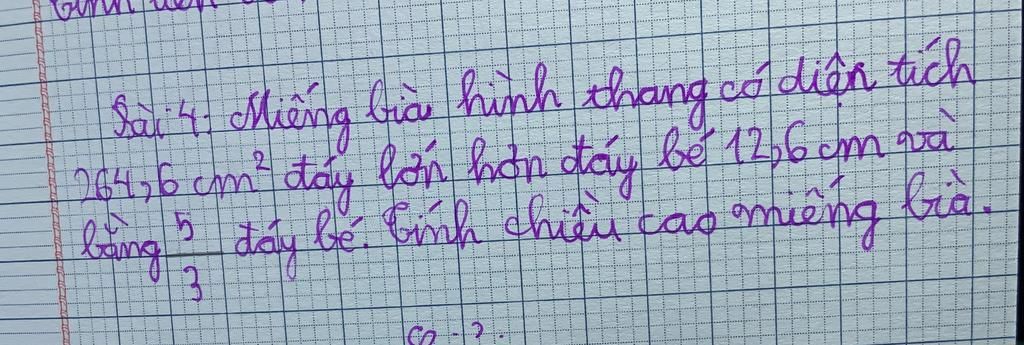 Bài 4: Miếng bìa hình thang có diện tích
264,6 cm² đáy lớn hơn đáy bé 12,6 cm và
bằng 5/3 đáy bé. Tính chiều cao miếng bìa.